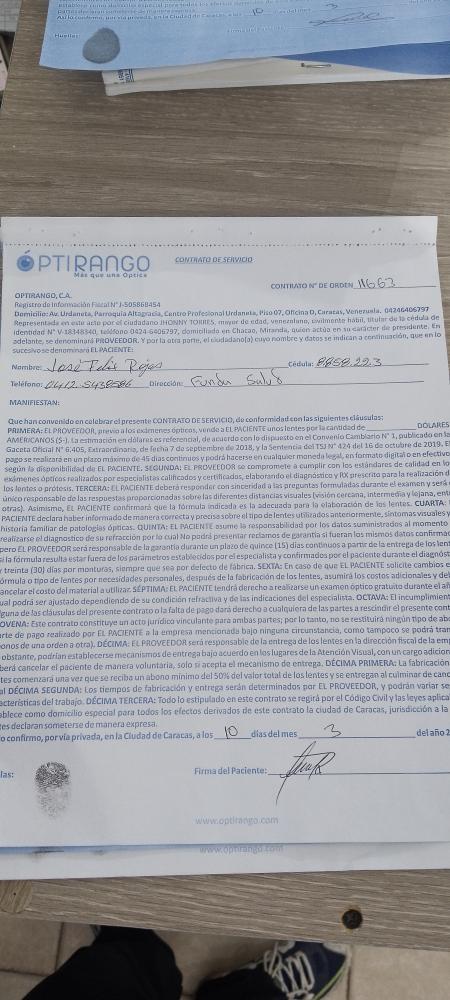 establece como domicilio especial para todos los efectos derivados
partes declaran someterse de manera expresa.
Así lo confirmo, por vía privada, en la Ciudad de Caracas, a los 10 días del mes 3
Huellas:
Firma del
ÓPTIRANGO
Más que una Óptica
CONTRATO DE SERVICIO
CONTRATO N° DE ORDEN 11663
OPTIRANGO, C.A.
Registro de Información Fiscal N° J-505868454
Domicilio: Av. Urdaneta, Parroquia Altagracia, Centro Profesional Urdaneta, Piso 07, Oficina D, Caracas, Venezuela. 04246406797
Representada en este acto por el ciudadano JHONNY TORRES, mayor de edad, venezolano, civilmente hábil, titular de la cédula de
identidad N° V-18348340, teléfono 0424-6406797, domiciliado en Chacao, Miranda, quien actúa en su carácter de presidente. En
adelante, se denominará PROVEEDOR. Y por la otra parte, el ciudadano(a) cuyo nombre y datos se indican a continuación, que en lo
sucesivo se denominará EL PACIENTE:
Nombre: José Felix Rojas Cédula: 8858.223
Teléfono: 0412.5438586 Dirección: Funda Salud
MANIFIESTAN:
Que han convenido en celebrar el presente CONTRATO DE SERVICIO, de conformidad con las siguientes cláusulas:
PRIMERA: EL PROVEEDOR, previo a los exámenes ópticos, vende a EL PACIENTE unos lentes por la cantidad de DÓLARES
AMERICANOS ($-). La estimación en dólares es referencial, de acuerdo con lo dispuesto en el Convenio Cambiario N° 1, publicado en la
Gaceta Oficial N° 6.405, Extraordinario, de fecha 7 de septiembre de 2018, y la Sentencia del TSJ N° 424 del 16 de octubre de 2019. E
pago se realizará en un plazo máximo de 45 días continuos y podrá hacerse en cualquier moneda legal, en formato digital o en efectivo
según la disponibilidad de EL PACIENTE. SEGUNDA: EL PROVEEDOR se compromete a cumplir con los estándares de calidad en lo
exámenes ópticos realizados por especialistas calificados y certificados, elaborando el diagnóstico y RX prescrito para la realización d
los lentes o prótesis. TERCERA: EL PACIENTE deberá responder con sinceridad a las preguntas formuladas durante el examen y será
único responsable de las respuestas proporcionadas sobre las diferentes distancias visuales (visión cercana, intermedia y lejana, ent
otras). Asimismo, EL PACIENTE confirmará que la fórmula indicada es la adecuada para la elaboración de los lentes. CUARTA:
PACIENTE declara haber informado de manera correcta y precisa sobre el tipo de lentes utilizados anteriormente, síntomas visuales y
historia familiar de patologías ópticas. QUINTA: EL PACIENTE asume la responsabilidad por los datos suministrados al momento
realizarse el diagnostico de su refracción por lo cual No podrá presentar reclamos de garantía si fueran los mismos datos confirmad
pero EL PROVEEDOR será responsable de la garantía durante un plazo de quince (15) días continuos a partir de la entrega de los lent
si la fórmula resulta estar fuera de los parámetros establecidos por el especialista y confirmados por el paciente durante el diagnóst
y treinta (30) días por monturas, siempre que sea por defecto de fábrica. SEXTA: En caso de que EL PACIENTE solicite cambios e
fórmula o tipo de lentes por necesidades personales, después de la fabricación de los lentes, asumirá los costos adicionales y del
cancelar el costo del material a utilizar. SÉPTIMA: EL PACIENTE tendrá derecho a realizarse un examen óptico gratuito durante el añ
ual podrá ser ajustado dependiendo de su condición refractiva y de las indicaciones del especialista. OCTAVA: El incumplimient
lguna de las cláusulas del presente contrato o la falta de pago dará derecho a cualquiera de las partes a rescindir el presente cont
OVENA: Este contrato constituye un acto jurídico vinculante para ambas partes; por lo tanto, no se restituirá ningún tipo de abo
rte de pago realizado por EL PACIENTE a la empresa mencionada bajo ninguna circunstancia, como tampoco se podrá tran
onos de una orden a otra). DÉCIMA: EL PROVEEDOR será responsable de la entrega de los lentes en la dirección fiscal de la em
obstante, podrían establecerse mecanismos de entrega bajo acuerdo en los lugares de la Atención Visual, con un cargo adicion
berá cancelar el paciente de manera voluntaria, solo si acepta el mecanismo de entrega. DÉCIMA PRIMERA: La fabricación
tes comenzará una vez que se reciba un abono mínimo del 50% del valor total de los lentes y se entregan al culminar de canc
al DÉCIMA SEGUNDA: Los tiempos de fabricación y entrega serán determinados por EL PROVEEDOR, y podrán variar se
acterísticas del trabajo. DÉCIMA TERCERA: Todo lo estipulado en este contrato se regirá por el Código Civil y las leyes aplica
ablece como domicilio especial para todos los efectos derivados de este contrato la ciudad de Caracas, jurisdicción a la
tes declaran someterse de manera expresa.
o confirmo, por vía privada, en la Ciudad de Caracas, a los 10 días del mes 3 del año 2
las:
Firma del Paciente:
www.optirango.com
www.optirango.com